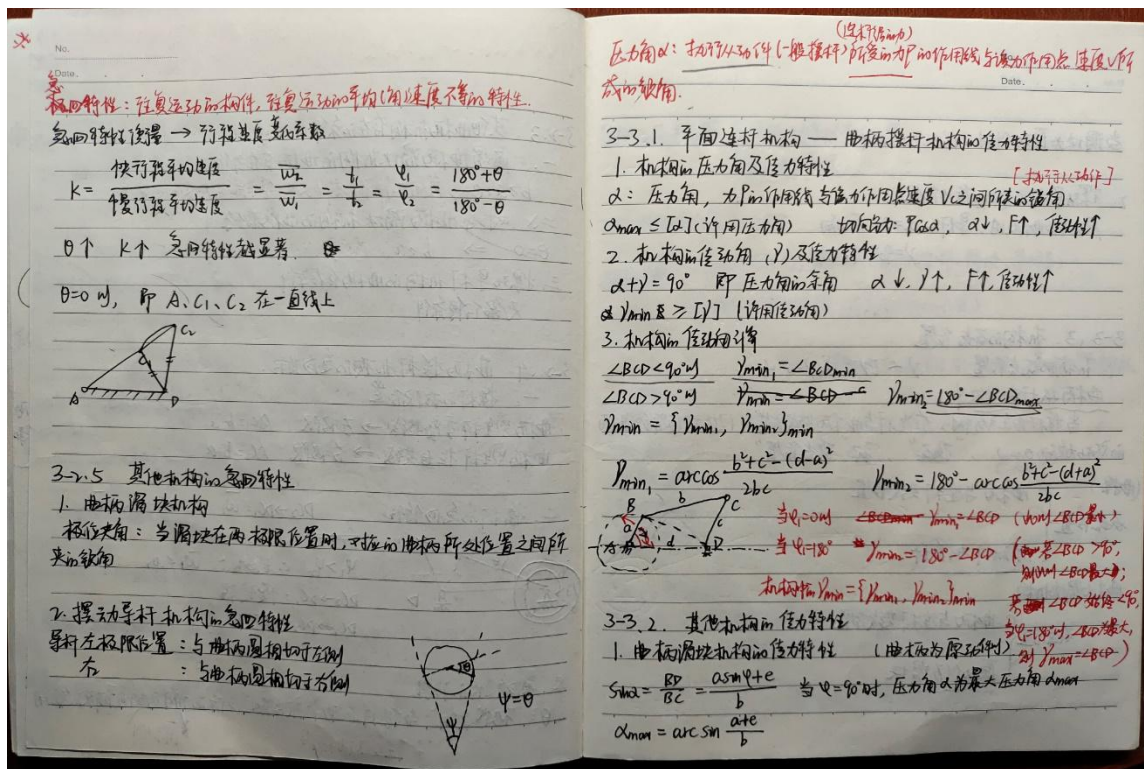 No.
Date.
急回特性：往复运动的构件，往复运动的平均(角)速度不等的特性.
急回特性衡量 → 行程速度变化系数
K = 快行程平均速度/慢行程平均速度 = w₂/w₁ = t₁/t₂ = φ₁/φ₂ = 180°+θ/180°-θ
θ↑ K↑ 急回特性越显著.
θ=0时, 即 A、C₁、C₂ 在一直线上
C₂
C₁
A D
3-2.5 其他机构的急回特性
1. 曲柄滑块机构
极位夹角：当滑块在两极限位置时，对应的曲柄所处位置之间所
夹的锐角
2. 摆动导杆机构的急回特性
导杆左极限位置：与曲柄圆相切于左侧
右 ：与曲柄圆相切于右侧
θ
ψ=θ
ψ
(连杆给的力)
压力角α：执行从动件(一般摆杆)所受的力P的作用线与该力作用点速度v所
Date.
成的锐角.
3-3.1. 平面连杆机构 —— 曲柄摇杆机构的传力特性
1. 机构的压力角及传力特性
[执行从动件]
α：压力角, 力P的作用线与该力作用点速度Vc之间所夹的锐角
αmax ≤ [α] (许用压力角) 切向分力: Pcosα, α↓, F↑, 传动性↑
2. 机构的传动角 (γ) 及传力特性
α+γ=90° 即 压力角的余角 α↓, γ↑, F↑, 传动性↑
γmin ≥ [γ] (许用传动角)
3. 机构的传动角计算
∠BCD<90°时 γmin₁=∠BCDmin
∠BCD>90°时 γmin=∠BCD γmin₂=180°-∠BCDmax
γmin = {γmin₁, γmin₂}min
γmin₁ = arccos b²+c²-(d-a)²/2bc γmin₂ = 180°-arccos b²+c²-(d+a)²/2bc
B b C
a c
A d D
当φ₁=0时 γmin₁=∠BCD (此时∠BCD最小)
当φ₁=180° γmin₂=180°-∠BCD (若∠BCD>90°,
则此时∠BCD最大;
机构的γmin={γmin₁, γmin₂}min
若∠BCD始终<90°,
当φ₁=180°时,∠BCD为最大,
则γmax=∠BCD)
3-3.2. 其他机构的传力特性
1. 曲柄滑块机构的传力特性 (曲柄为原动件)
sinα = BD/BC = asinφ+e/b 当φ=90°时, 压力角α为最大压力角αmax
αmax = arcsin a+e/b